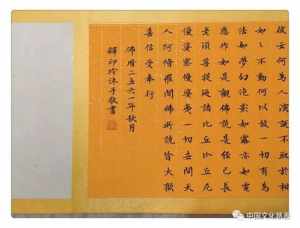 云何為人演說不取於相
如如不動何以故一切有為
法如夢幻泡影如露亦如電
應作如是觀佛說是經已長
老須菩提及諸比丘比丘尼
優婆塞優婆夷一切世間天
人阿修羅聞佛所說皆大歡
喜信受奉行
佛曆二五六一年秋月
釋印 沐手敬書
中国文化慕课